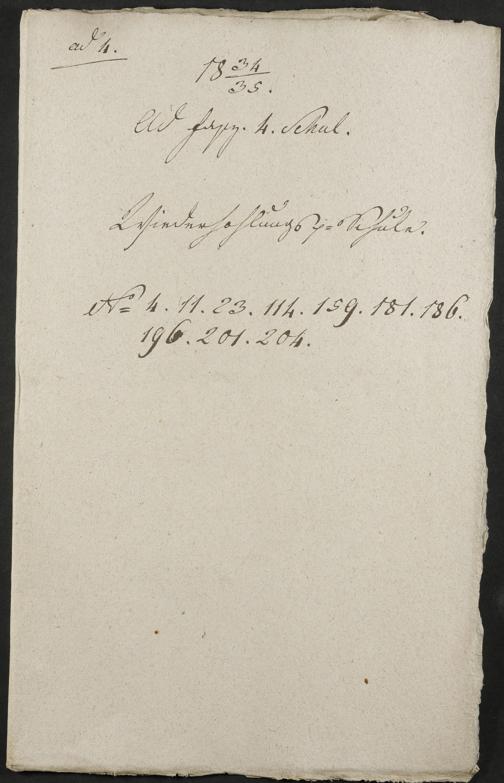 ad 4.
18 34/35.
Ad fasz. 4. Schul.
Wiederhohlungs=Schule.
No 4. 11. 23. 114. 159. 181. 186.
196. 201. 204.